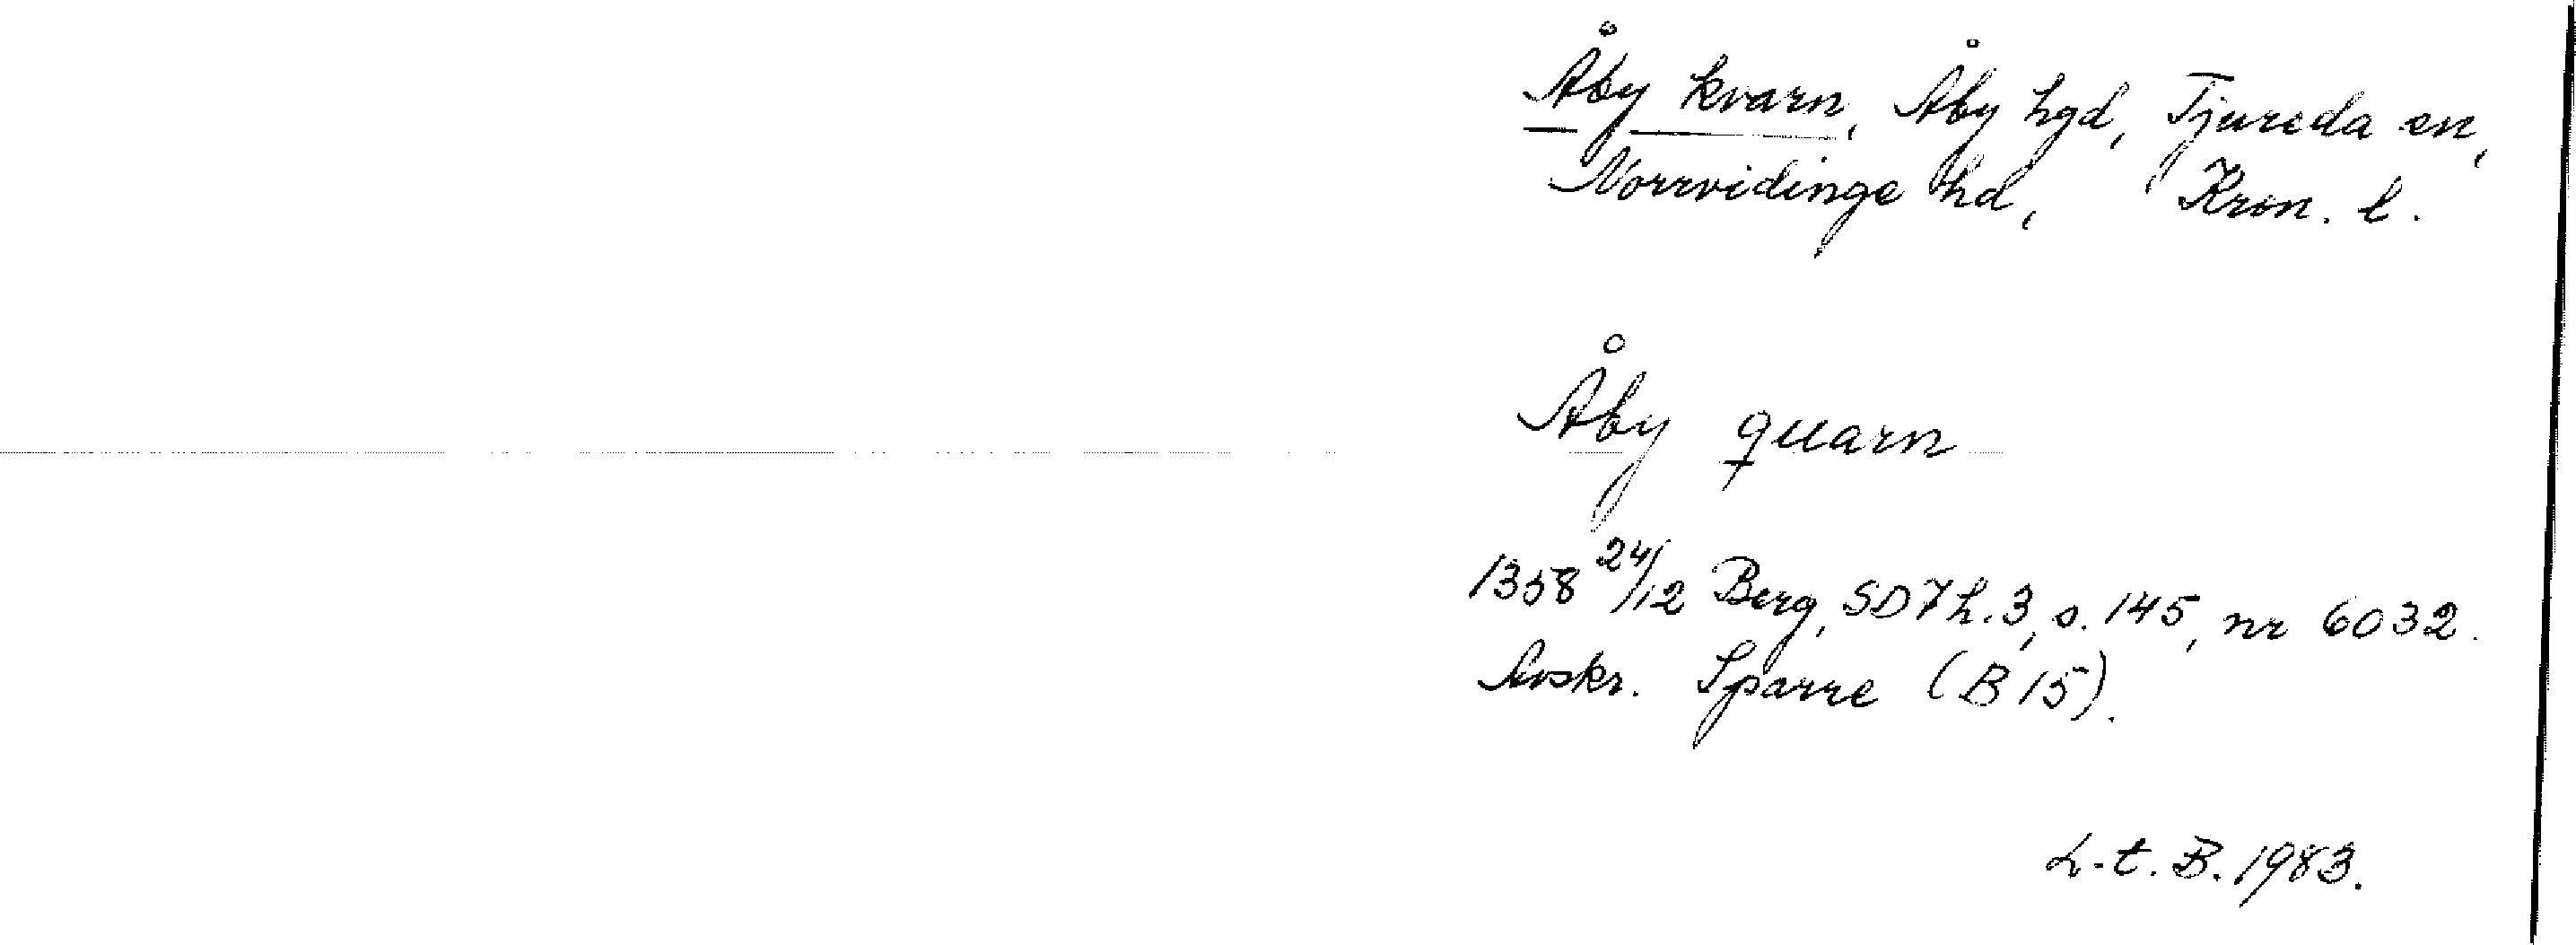 Åby kvarn, Åby hgd, Tjureda sn,
Norrvidinge hd, Kron. l.
Åby quarn
1358 24/12 Berg, SD 7 h. 3, s. 145, nr 6032.
Avskr. Sparre (B 15).
L-t. B. 1983.